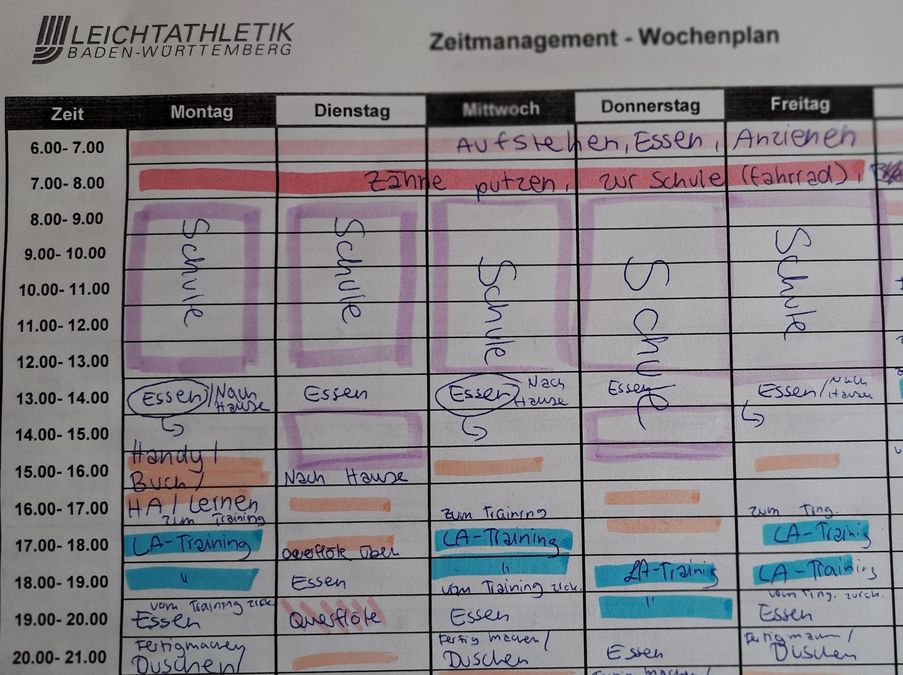 LEICHTATHLETIK
BADEN-WÜRTTEMBERG
Zeitmanagement - Wochenplan
Zeit Montag Dienstag Mittwoch Donnerstag Freitag
6.00- 7.00 Aufstehen, Essen, Anziehen
7.00- 8.00 Zähne putzen, zur Schule (Fahrrad),
8.00- 9.00
9.00- 10.00 Schule Schule Schule Schule Schule
10.00- 11.00
11.00- 12.00
12.00- 13.00
13.00- 14.00 Essen/Nach Hause Essen Essen Nach Hause Essen Essen/Nach Hause
14.00- 15.00
Handy/
15.00- 16.00 Buch/ Nach Hause
16.00- 17.00 HA/Lernen
zum Training zum Training zum Tng.
17.00- 18.00 LA-Training Querflöte üben LA-Training LA-Training
18.00- 19.00 " Essen " LA-Trainig LA-Training
vom Training zück. vom Training zick. vom Tng. zurück.
19.00- 20.00 Essen Querflöte Essen " Essen
Fertigmachen Fertig machen/ Fertigmachen/
20.00- 21.00 Duschen/ Duschen Essen Duschen